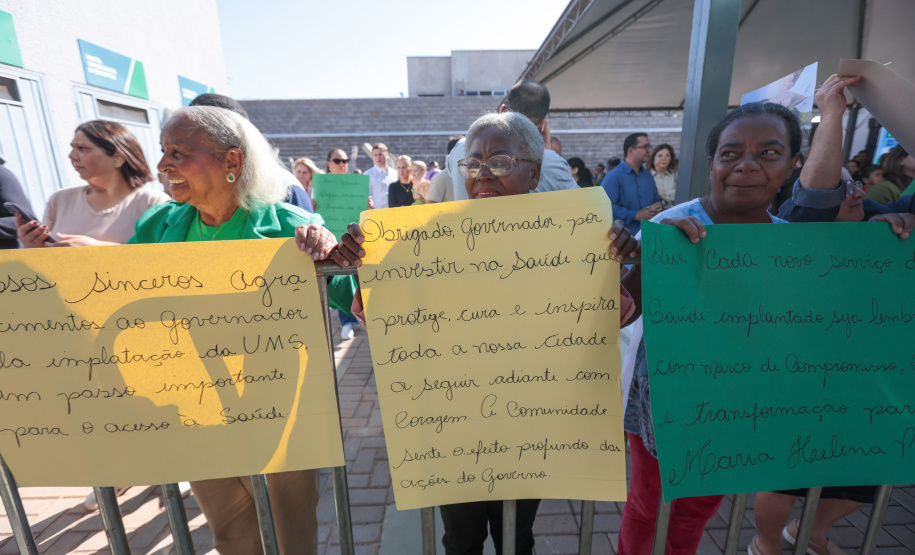 sos sinceros agra
cimentos ao Governador
la implatação da UMS.
um passo importante
para o acesso à Saúde
Obrigado, Governador, por
investir na Saúde que
protege, cura e inspira
toda a nossa cidade
a seguir adiante com
Coragem. A Comunidade
sente o efeito profundo das
ações do Governo.
Que Cada novo serviço d
Saúde implantado seja lemb
com marco de Compromisso,
e transformação par
Maria Helena